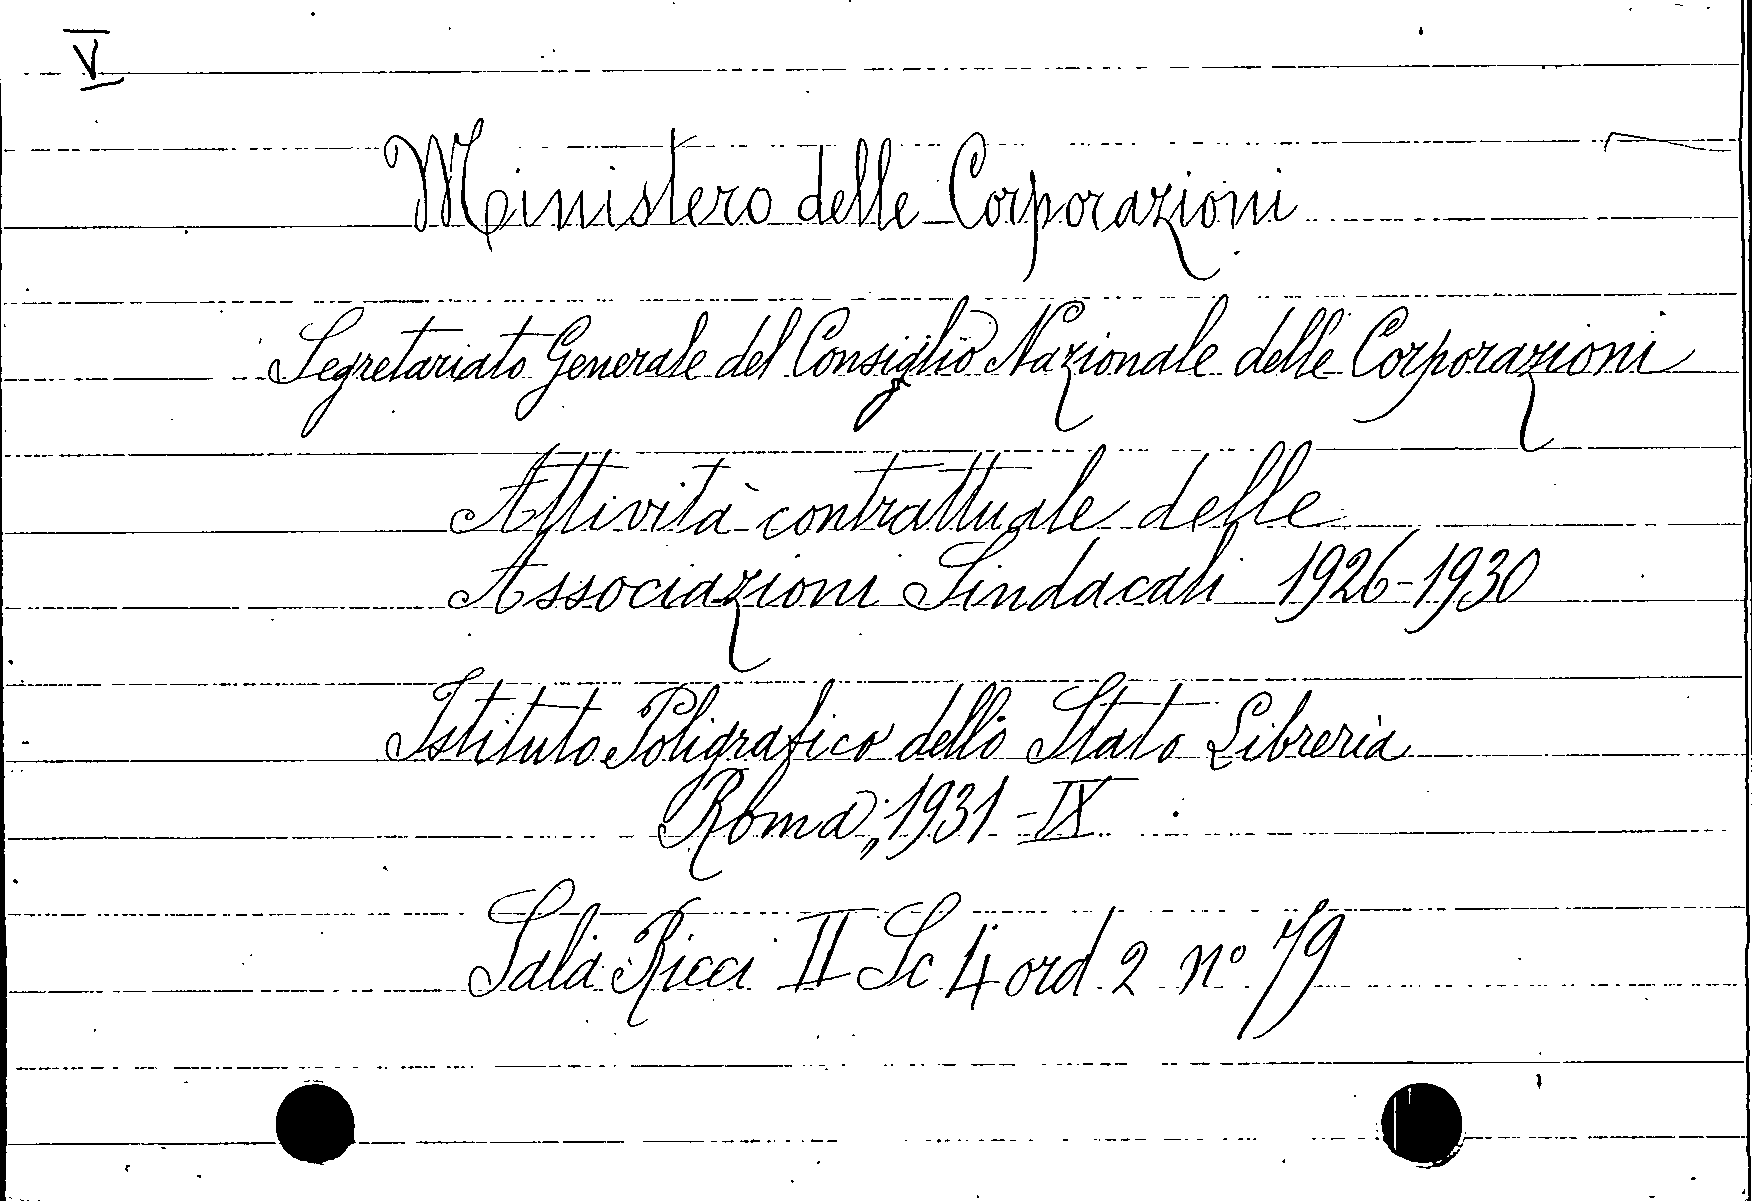 V
Ministero delle Corporazioni
Segretariato Generale del Consiglio Nazionale delle Corporazioni
Attività contrattuale delle
Associazioni Sindacali 1926-1930
Istituto Poligrafico dello Stato Libreria
Roma, 1931 - IX
Sala Ricci II Sc 4 ord 2 nº 79